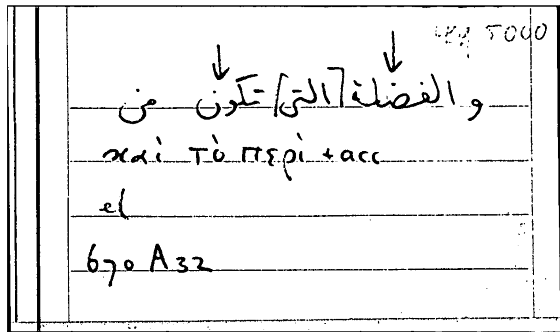 5000
↓ ↓
والفضلة [التي] تكون من
καὶ τὸ περὶ + acc
el
670 A32